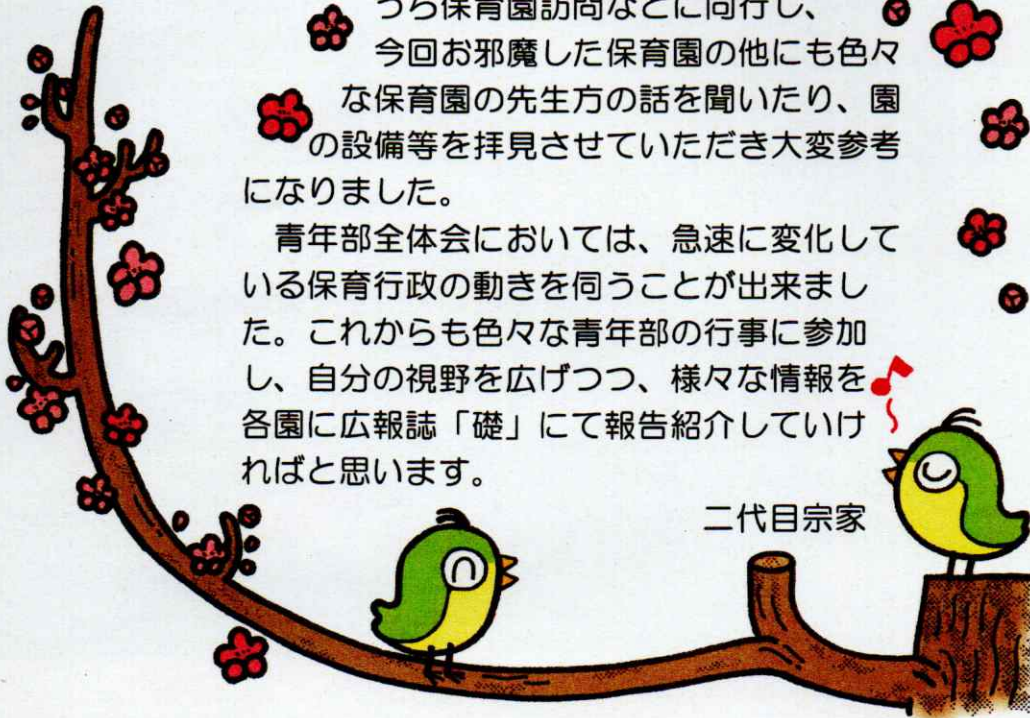 うち保育園訪問などに同行し、
今回お邪魔した保育園の他にも色々
な保育園の先生方の話を聞いたり、園
の設備等を拝見させていただき大変参考
になりました。
青年部全体会においては、急速に変化して
いる保育行政の動きを伺うことが出来まし
た。これからも色々な青年部の行事に参加
し、自分の視野を広げつつ、様々な情報を
各園に広報誌「礎」にて報告紹介していけ
ればと思います。
二代目宗家